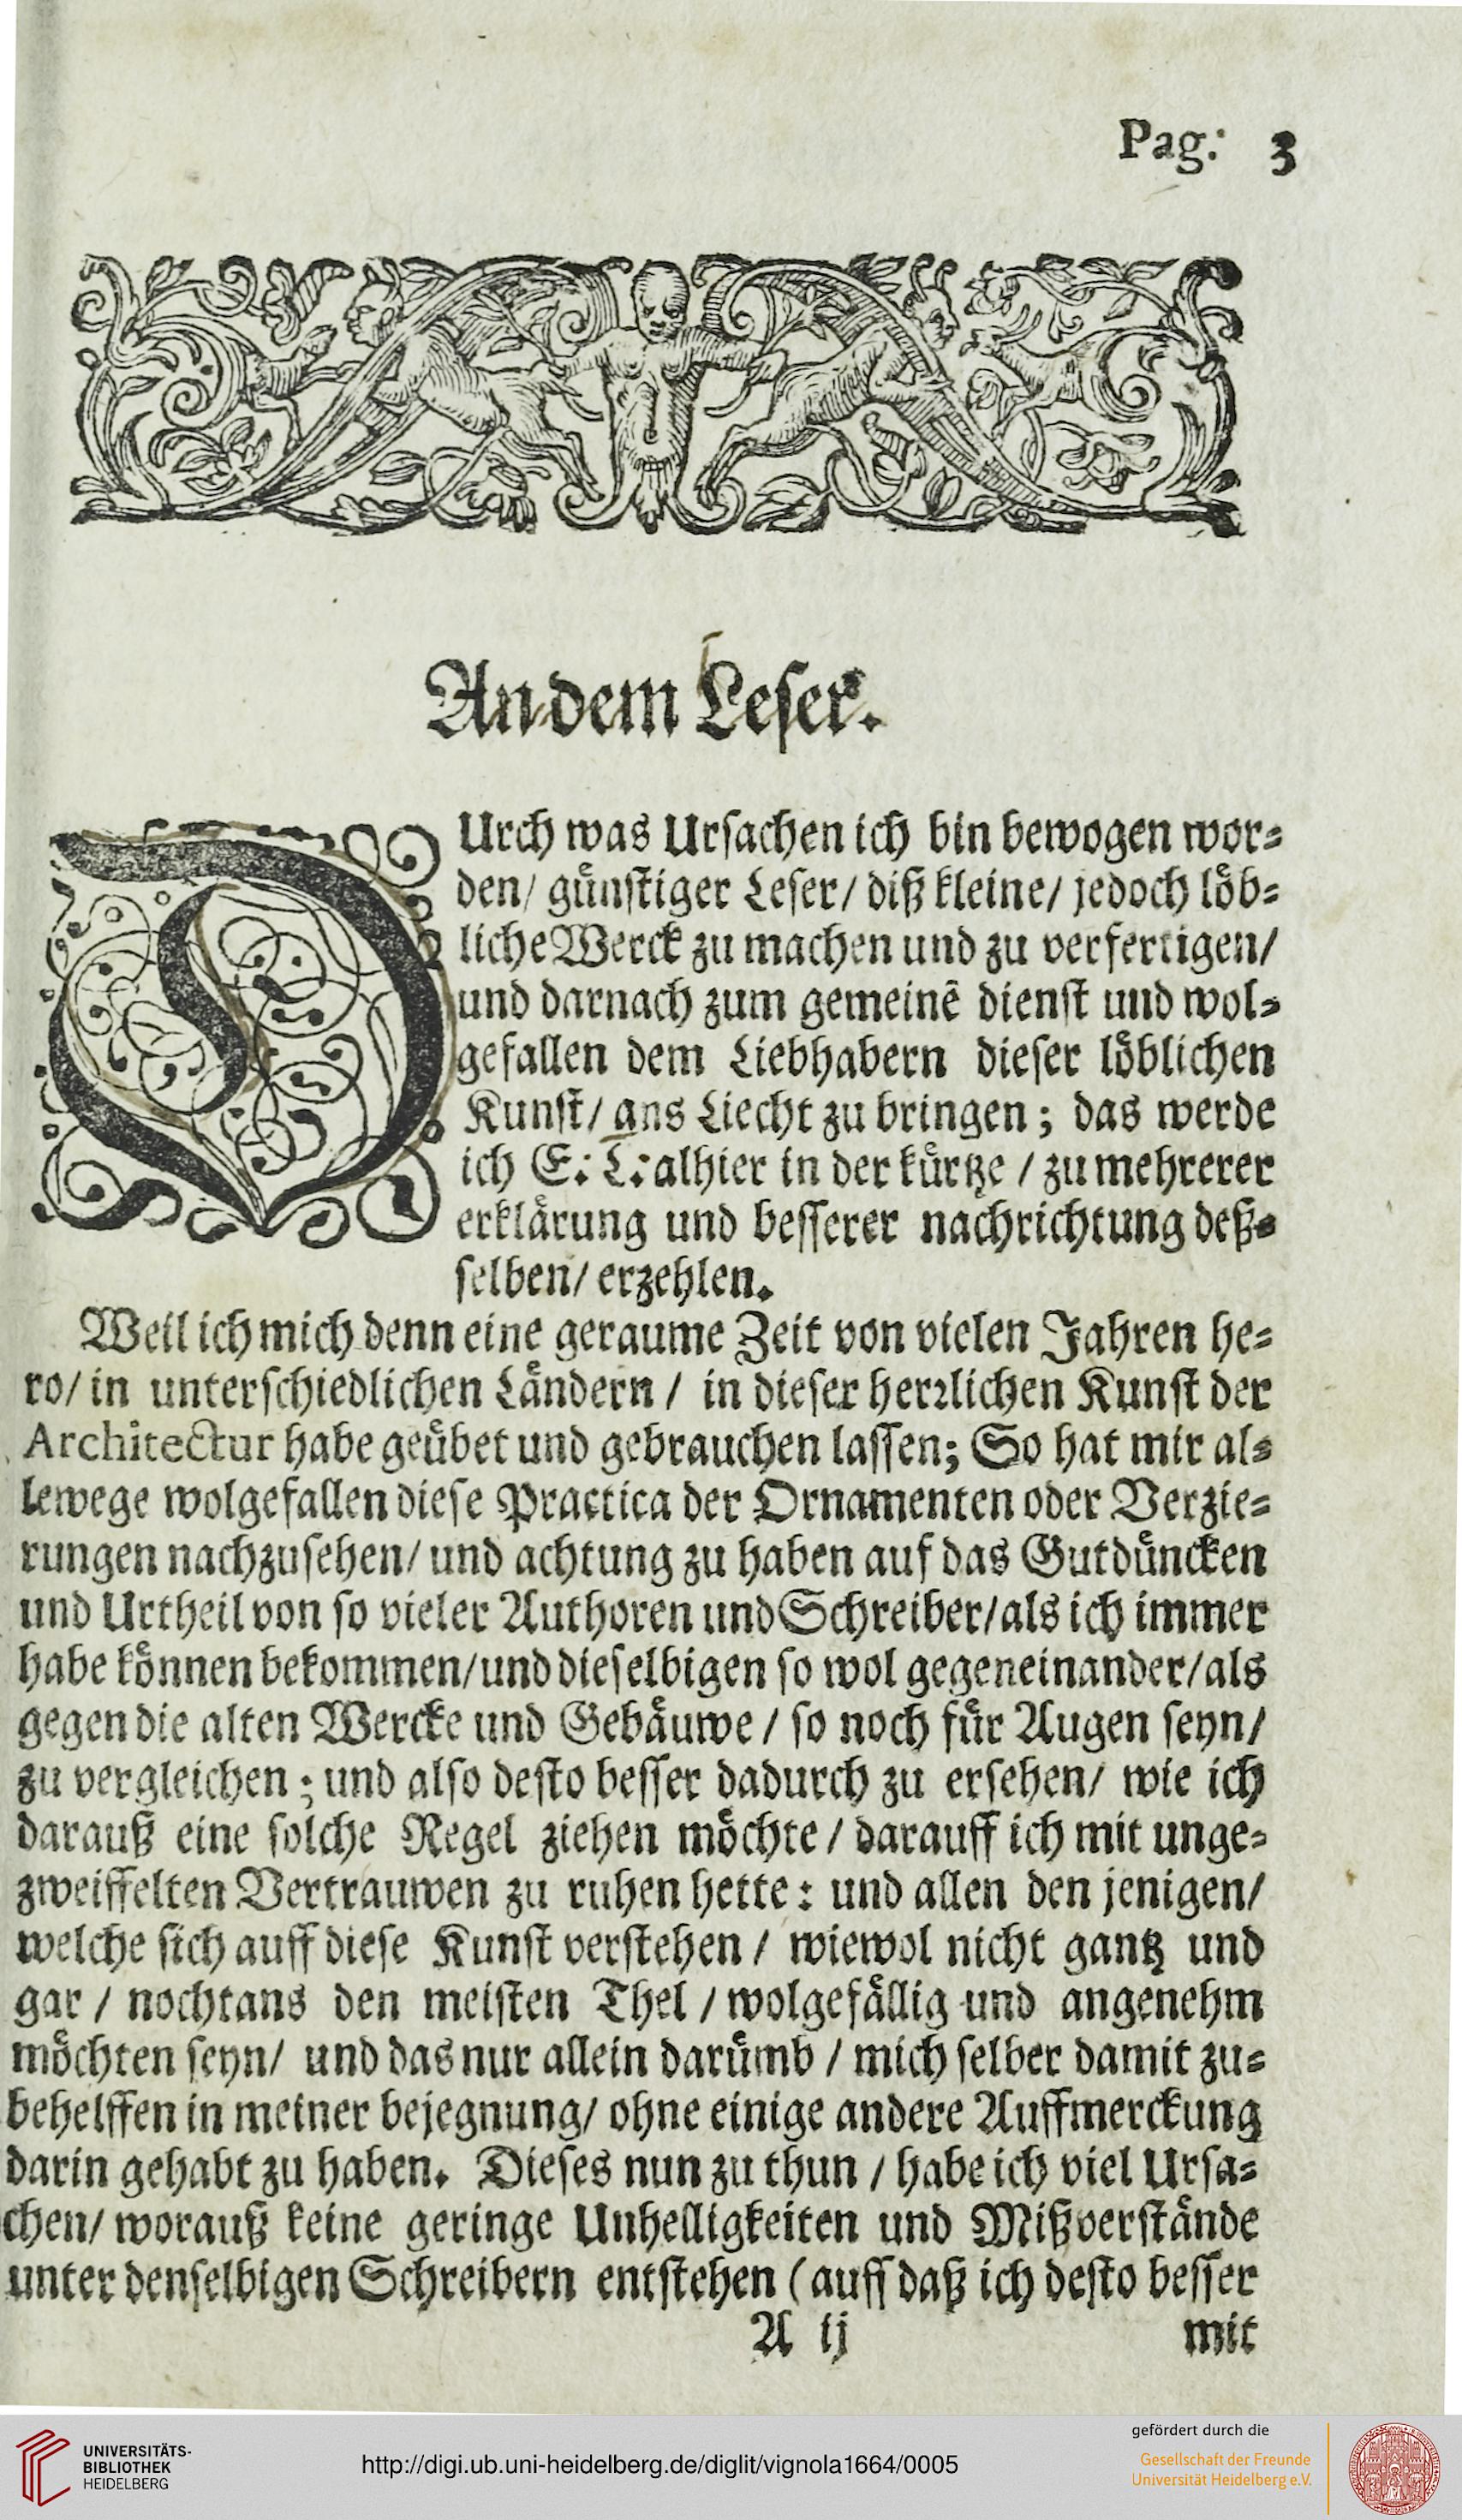 Pag: 3
An dem Leser.
DUrch was Ursachen ich bin bewogen wor=
den/ günstiger Leser/ diß kleine/ jedoch löb=
liche Werck zu machen und zu verfertigen/
und darnach zum gemeinē dienst und wol=
gefallen dem Liebhabern dieser löblichen
Kunst/ ans Liecht zu bringen; das werde
ich E: L: alhier in der kürtze / zu mehrerer
erklärung und besserer nachrichtung deß=
selben/ erzehlen.
Weil ich mich denn eine geraume Zeit von vielen Jahren he=
ro/ in unterschiedlichen Ländern / in dieser herrlichen Kunst der
Architectur habe geübet und gebrauchen lassen; So hat mir al=
lewege wolgefallen diese Practica der Ornamenten oder Verzie=
rungen nachzusehen/ und achtung zu haben auf das Gutdüncken
und Urtheil von so vieler Authoren und Schreiber/ als ich immer
habe können bekommen/ und dieselbigen so wol gegeneinander/ als
gegen die alten Wercke und Gebäuwe / so noch für Augen seyn/
zu vergleichen; und also desto besser dadurch zu ersehen/ wie ich
darauß eine solche Regel ziehen möchte / darauff ich mit unge=
zweiffelten Vertrauwen zu ruhen hette: und allen den jenigen/
welche sich auff diese Kunst verstehen / wiewol nicht gantz und
gar / nochtans den meisten Thel / wolgefällig und angenehm
möchten seyn/ und das nur allein darümb / mich selber damit zu=
behelffen in meiner bejegnung/ ohne einige andere Auffmerckung
darin gehabt zu haben. Dieses nun zu thun / habe ich viel Ursa=
chen/ worauß keine geringe Unhelligkeiten und Mißverstände
unter denselbigen Schreibern entstehen (auff daß ich desto besser
A ij mit
UNIVERSITÄTS-
BIBLIOTHEK
HEIDELBERG
http://digi.ub.uni-heidelberg.de/diglit/vignola1664/0005
gefördert durch die
Gesellschaft der Freunde
Universität Heidelberg e.V.